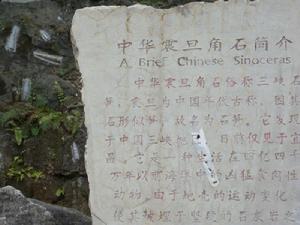 中华震旦角石简介
A Brief Chinese Sinoceras
中华震旦角石俗称三峡石
笋，震旦为中国年代古称，因其
石形似笋，故名为石笋。它发现
于中国三峡地　目前仅见于宜
昌。它是一种生活在四亿四千
万年以前海华中的凶猛食肉性
动物。由于地壳的运动变化
使其被埋于坚硬的石灰岩之